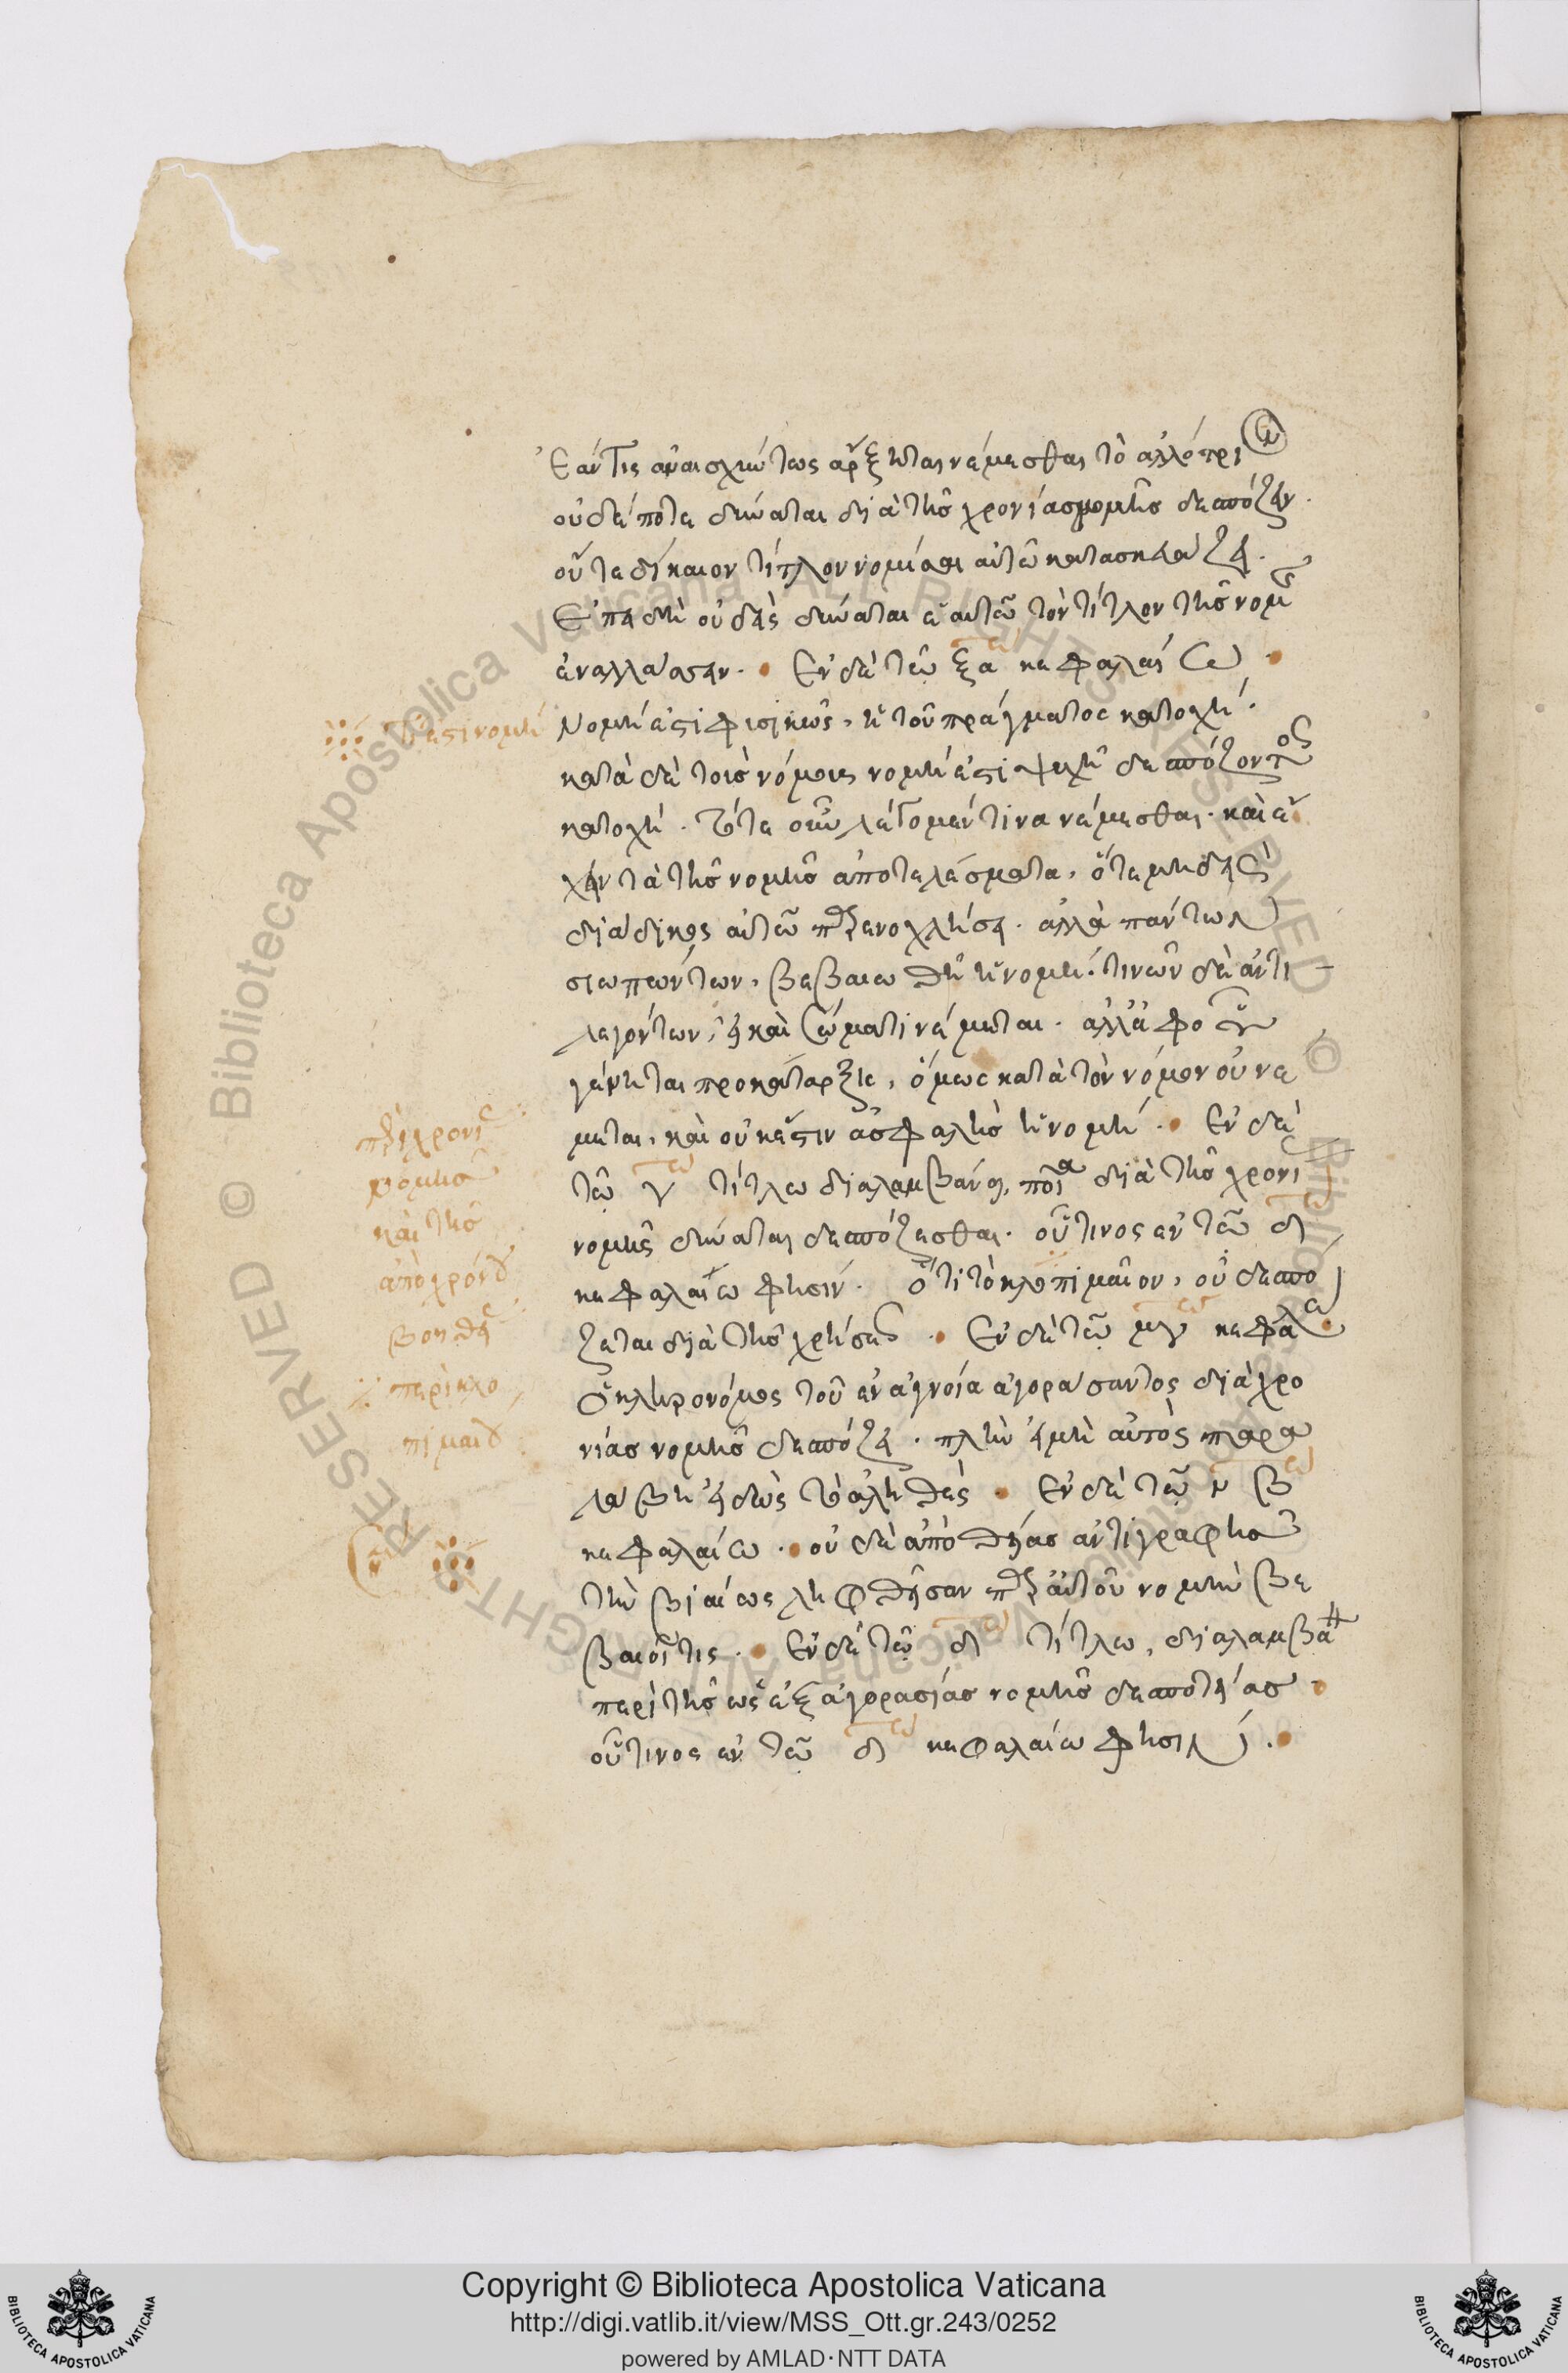 Ἐάν τις ἀναισχύντως ἄρξηται νέμεσθαι τὸ ἀλλότριον
οὐδέποτε δύναται διὰ τῆς χρονίας νομῆς δεσπόζειν.
οὔτε δίκαιον τίτλον νομίσαι αὐτῷ κατασκευάζει.
Ἐπειδὴ οὐδεὶς δύναται ἑαυτῷ τὸν τίτλον τῆς νομῆς
ἐναλλάσσειν. Ἐν δὲ τῷ ξαω κεφαλαίω
Νομή ἐστι φυσικῶς, ἡ τοῦ πράγματος κατοχή.
κατὰ δὲ τοὺς νόμους νομή ἐστι ψυχῇ δεσπόζοντος
κατοχή. τότε οὖν λέγομέν τινα νέμεσθαι. καὶ ἔ
χειν τὰ τῆς νομῆς ἀποτελέσματα, ὅτε μηδεὶς
διάδικος αὐτῷ παρενοχλήσει. ἀλλὰ πάντων
σιωπώντων, βεβαιωθῇ ἡ νομή. τινῶν δὲ ἀντι
λεγόντων, εἰ καὶ σώματι νέμηται. ἀλλ' ἀφ' οὗ
γένηται προκάταρξις, ὅμως κατὰ τὸν νόμον οὐ νέ
μεται, καὶ οὐκ ἔστιν ἀσφαλὴς ἡ νομή. Ἐν δὲ
τῷ γω τίτλω διαλαμβάνει, ποῖα διὰ τῆς χρονίας
νομῆς δύναται δεσπόζεσθαι. οὗτινος ἐν τῷ δω
κεφαλαίω φησίν. ὅτι τὸ κλοπιμαῖον, οὐ δεσπό
ζεται διὰ τῆς χρήσεως. Ἐν δὲ τῷ μγω κεφαλαίω
Ὁ κληρονόμος τοῦ ἐν ἀγνοία ἀγοράσαντος διὰ χρο
νίας νομῆς δεσπόζει. πλὴν εἰ μὴ αὐτὸς παρα
λάβη εἰδὼς τὸ ἀληθές. Ἐν δὲ τῷ νβω
κεφαλαίω. οὐδὲ ἀπὸ θείας ἀντιγραφῆς
τὴν βιαίως ληφθεῖσαν παρ' αὐτοῦ νομὴν βε
βαιοῖ τις. Ἐν δὲ τῷ δω τίτλω, διαλαμβάνει
περὶ τῆς ὡς ἐξ ἀγορασίας νομῆς δεσποτείας
οὗτινος ἐν τῷ δω κεφαλαίω φησίν.
τί ἐστι νομή
περὶ χρονίας
νομῆς
καὶ τῆς
ἀπὸ χρόνου
βοηθείας
περὶ κλο
πιμαίου
Copyright © Biblioteca Apostolica Vaticana
http://digi.vatlib.it/view/MSS_Ott.gr.243/0252
powered by AMLAD·NTT DATA
BIBLIOTECA APOSTOLICA VATICANA
BIBLIOTECA APOSTOLICA VATICANA